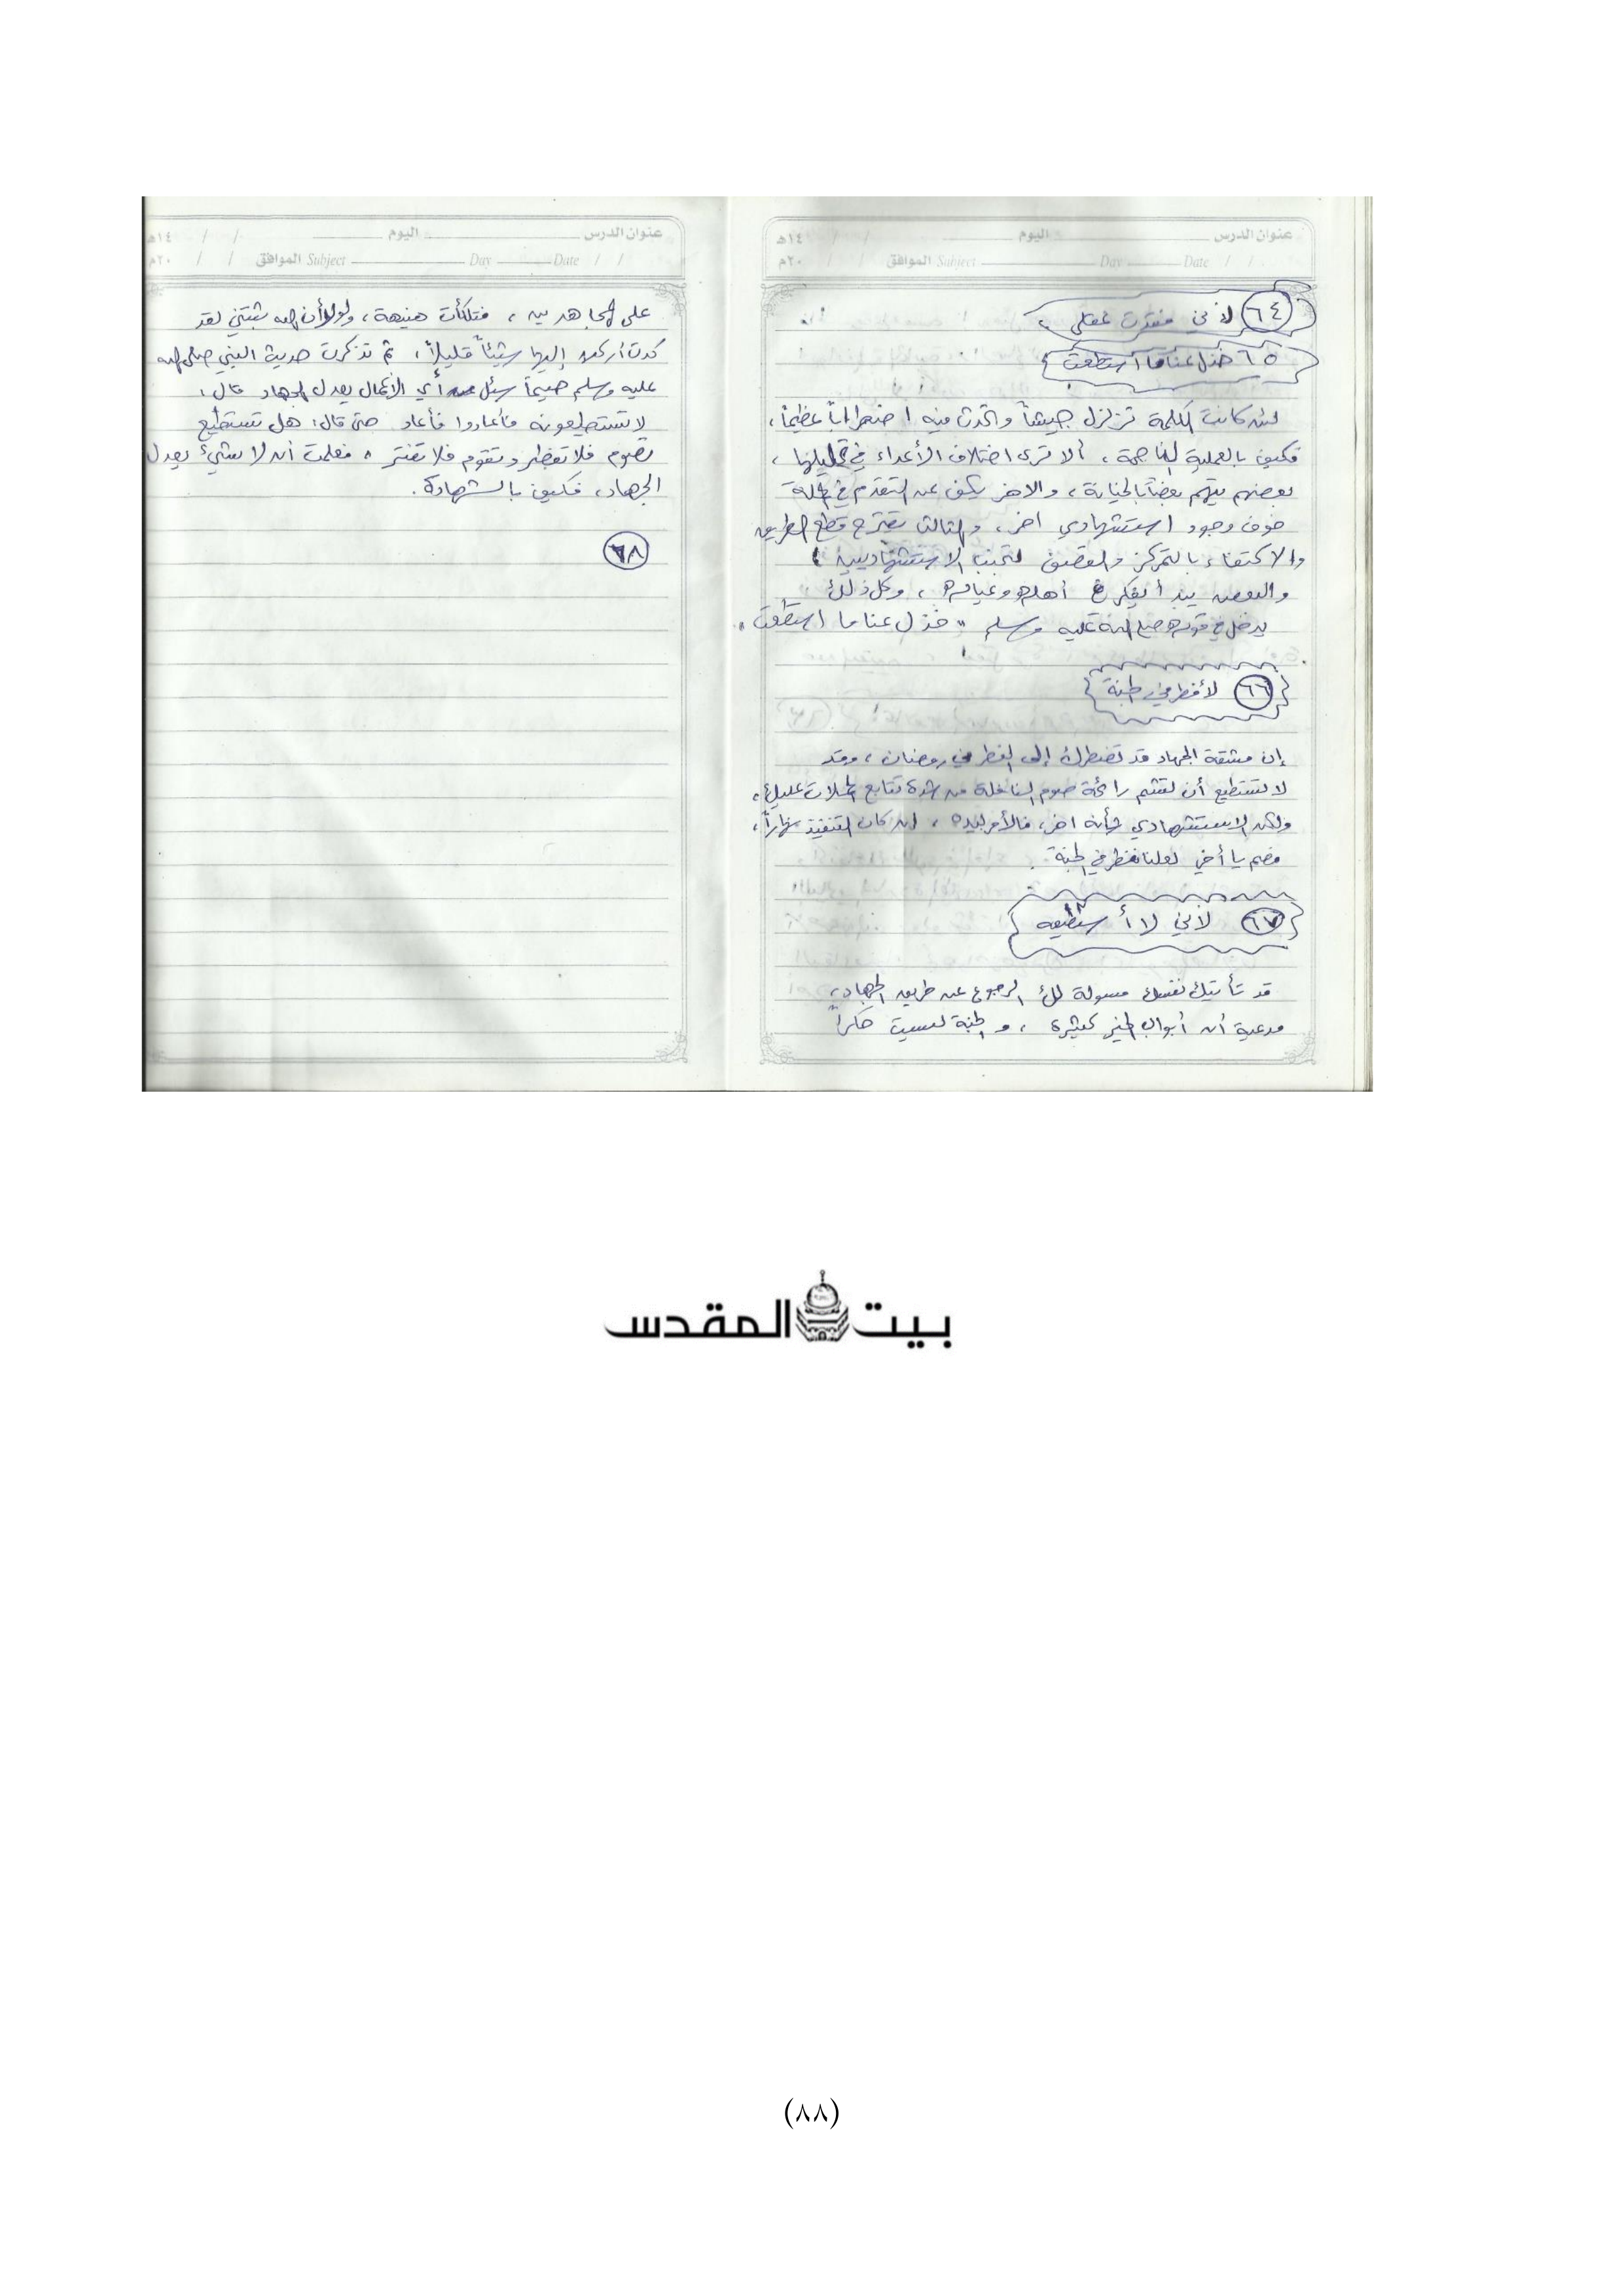 عنوان الدرس اليوم / / ١٤هـ
Subject Day Date / / الموافق / / ٢٠م
٦٤ لأني فقدت عقلي
٦٥ خذل عنا ما استطعت
لئن كانت الكلمة تزلزل جيشاً وتحدث فيه اضطراباً عظيماً،
فكيف بالعملية الناجحة، ألا ترى اختلاف الأعداء في تحليلها،
بعضهم يتهم بعضاً بالخيانة، والاخر يكف عن التقدم في
خوف وجود استشهادي اخر، والثالث يقترح قطع الطريق
والاكتفاء بالتمركز والقصف لتجنب الاستشهاديين
والبعض يبدأ يفكر في أهله وعياله، وكل ذلك
يدخل في قوله صلى الله عليه وسلم "خذل عنا ما استطعت"
٦٦ لأفطر في الجنة
إن مشقة الجهاد قد تضطرك إلى الفطر في رمضان، وقد
لا تستطيع أن تشتم رائحة صوم النافلة من شدة تتابع الحملات عليك،
ولكن الاستشهادي شأنه اخر، فالأمر بيده، إن كان التنفيذ نهاراً،
فصم يا أخي لعلنا نفطر في الجنة.
٦٧ لأني لا أستطيعه
قد تأتيك نفسك مسولة لك الرجوع عن طريق الجهاد،
مدعية أن أبواب الخير كثيرة، والجنة ليست حكراً
عنوان الدرس اليوم / / ١٤هـ
Subject Day Date / / الموافق / / ٢٠م
على المجاهدين، فتلكأت هنيهة، ولولا أن الله ثبتني لقد
كدت أركن إليها شيئاً قليلاً، ثم تذكرت حديث النبي صلى الله
عليه وسلم حينما سئل عن أي الأعمال يعدل الجهاد قال:
لا تستطيعونه فأعادوا فأعاد حتى قال: هل تستطيع
تصوم فلا تفطر وتقوم فلا تفتر، فعلمت أن لا شيء يعدل
الجهاد، فكيف بالشهادة.
٦٨
بيت المقدس
(٨٨)